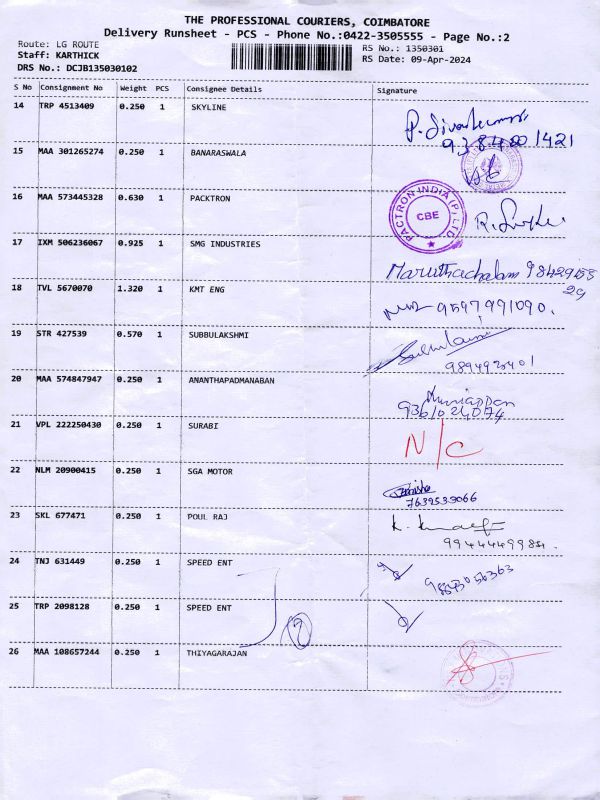 THE PROFESSIONAL COURIERS, COIMBATORE
Delivery Runsheet - PCS - Phone No.:0422-3505555 - Page No.:2
Route: LG ROUTE
Staff: KARTHICK
DRS No.: DCJB135030102
RS No.: 1350301
RS Date: 09-Apr-2024
S No Consignment No Weight PCS Consignee Details Signature
14 TRP 4513409 0.250 1 SKYLINE
15 MAA 301265274 0.250 1 BANARASWALA
16 MAA 573445328 0.630 1 PACKTRON
PACTRON INDIA (P) LTD
CBE
17 IXM 506236067 0.925 1 SMG INDUSTRIES Maruthachalam
18 TVL 5670070 1.320 1 KMT ENG 9597991090.
19 STR 427539 0.570 1 SUBBULAKSHMI
20 MAA 574847947 0.250 1 ANANTHAPADMANABAN Muniappan
21 VPL 222250430 0.250 1 SURABI N/C
22 NLM 20900415 0.250 1 SGA MOTOR
7639539066
23 SKL 677471 0.250 1 POUL RAJ
24 TNJ 631449 0.250 1 SPEED ENT
25 TRP 2098128 0.250 1 SPEED ENT
2
26 MAA 108657244 0.250 1 THIYAGARAJAN